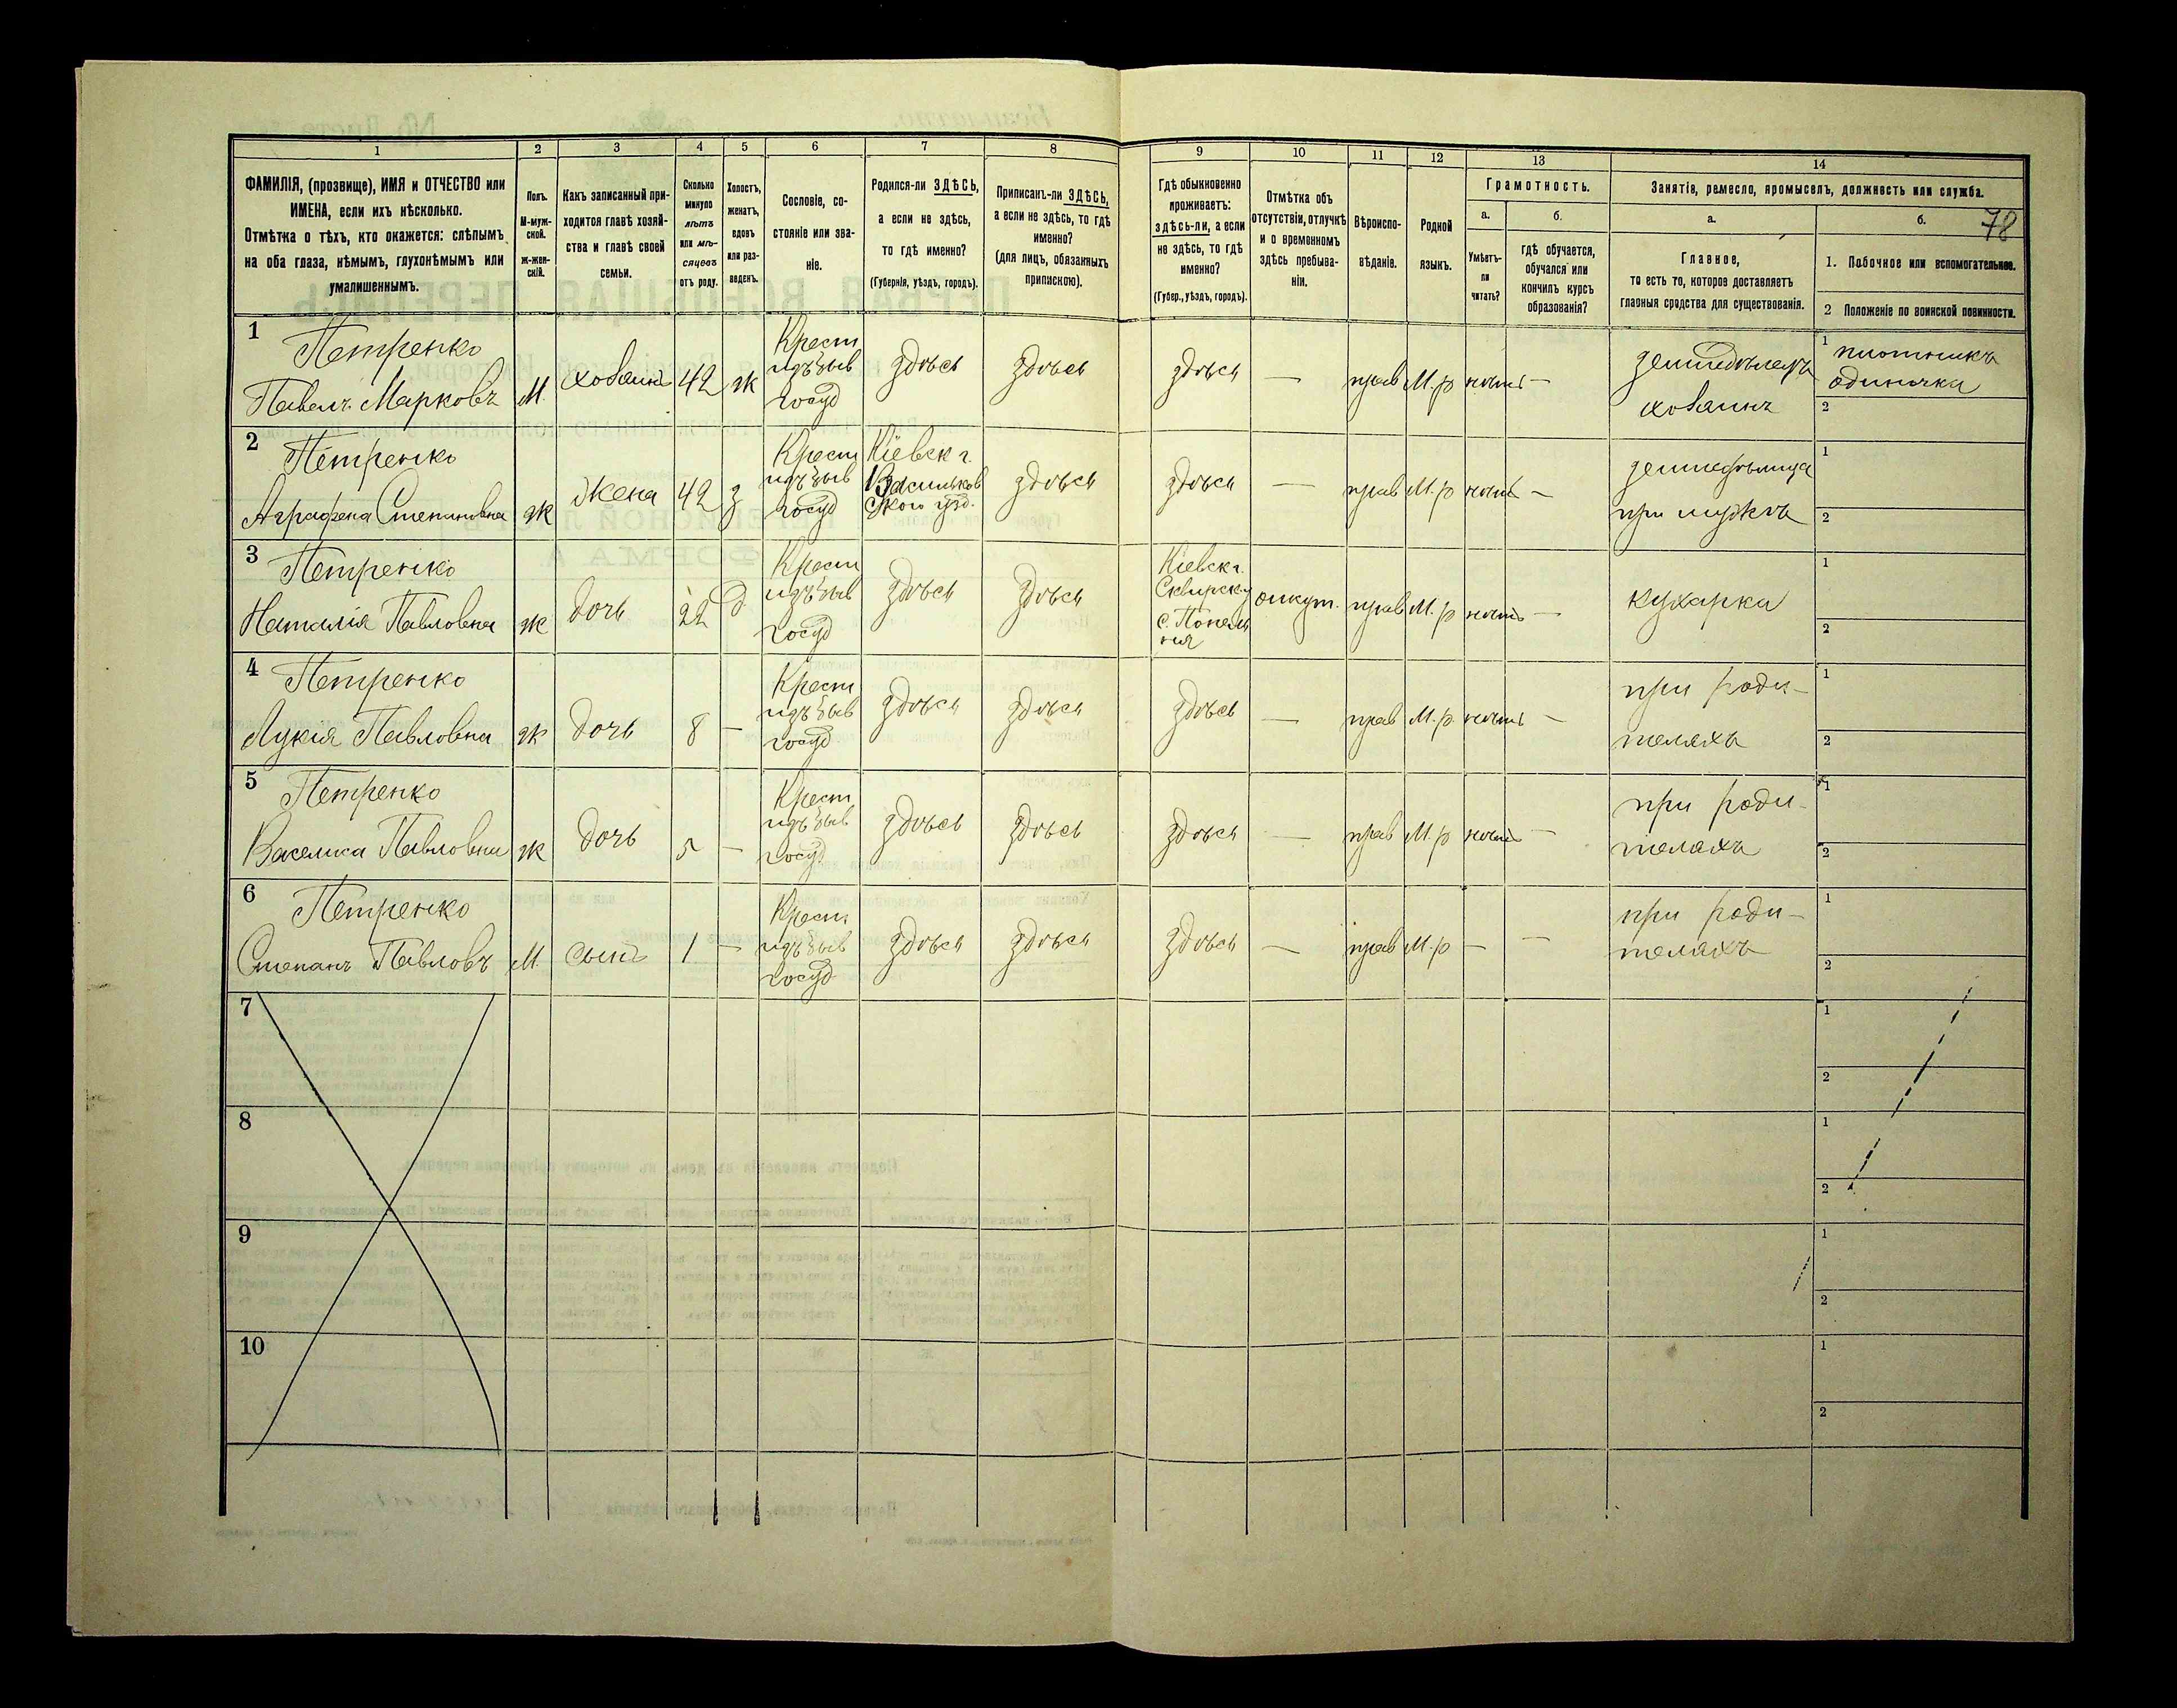 78
1 2 3 4 5 6 7 8 9 10 11 12 13 14
ФАМИЛІЯ, (прозвище), ИМЯ и ОТЧЕСТВО или
ИМЕНА, если ихъ нѣсколько.
Отмѣтка о тѣхъ, кто окажется: слѣпымъ
на оба глаза, нѣмымъ, глухонѣмымъ или
умалишеннымъ.
Полъ.
М-муж-
ской.
Ж-жен-
скій.
Какъ записанный при-
ходится главѣ хозяй-
ства и главѣ своей
семьи.
Сколько
минуло
лѣтъ
или мѣ-
сяцевъ
отъ роду.
Холостъ,
женатъ,
вдовъ
или раз-
веденъ.
Сословіе, со-
стояніе или зва-
ніе.
Родился-ли ЗДѢСЬ,
а если не здѣсь,
то гдѣ именно?
(Губернія, уѣздъ, городъ).
Приписанъ-ли ЗДѢСЬ,
а если не здѣсь, то гдѣ
именно?
(для лицъ, обязанныхъ
припискою).
Гдѣ обыкновенно
проживаетъ:
здѣсь-ли, а если
не здѣсь, то гдѣ
именно?
(Губер., уѣздъ, городъ).
Отмѣтка объ
отсутствіи, отлучкѣ
и о временномъ
здѣсь пребыва-
ніи.
Вѣроиспо-
вѣданіе.
Родной
языкъ.
Грамотность.
а.
Умѣетъ-
ли
читать?
б.
гдѣ обучается,
обучался или
кончилъ курсъ
образованія?
Занятіе, ремесло, промыселъ, должность или служба.
а.
Главное,
то есть то, которое доставляетъ
главныя средства для существованія.
б.
1. Побочное или вспомогательное.
2 Положеніе по воинской повинности.
1
Петренко
Павелъ Марковъ
М.
хозаинъ
42
ж
Крест
изъ быв
госуд
здѣсь
здѣсь
здѣсь
—
прав
М.р
нѣтъ
—
земледѣлецъ
хозаинъ
1 плотникъ
одиночка
2
2
Петренко
Аграфена Степановна
ж
Жена
42
з
Крест
изъ быв
госуд
Кіевск г.
Васильков
ского уѣзд.
здѣсь
здѣсь
—
прав
М.р
нѣтъ
—
земледѣлица
при мужѣ
1
2
3
Петренко
Наталія Павловна
ж
дочь
22
д
Крест
изъ быв
госуд
здѣсь
здѣсь
Кіевск г.
Сквирск у
с. Попель
ня
отлут.
прав
М.р
нѣтъ
—
кухарка
1
2
4
Петренко
Лукія Павловна
ж
дочь
8
—
Крест
изъ быв
госуд
здѣсь
здѣсь
здѣсь
—
прав
М.р
нѣтъ
—
при роди-
теляхъ
1
2
5
Петренко
Василиса Павловна
ж
дочь
5
—
Крест
изъ быв
госуд
здѣсь
здѣсь
здѣсь
—
прав
М.р
нѣтъ
—
при роди-
теляхъ
1
2
6
Петренко
Степанъ Павловъ
М.
сынъ
1
—
Крест
изъ быв
госуд
здѣсь
здѣсь
здѣсь
—
прав
М.р
—
—
при роди-
теляхъ
1
2
7
1
2
8
1
2
9
1
2
10
1
2